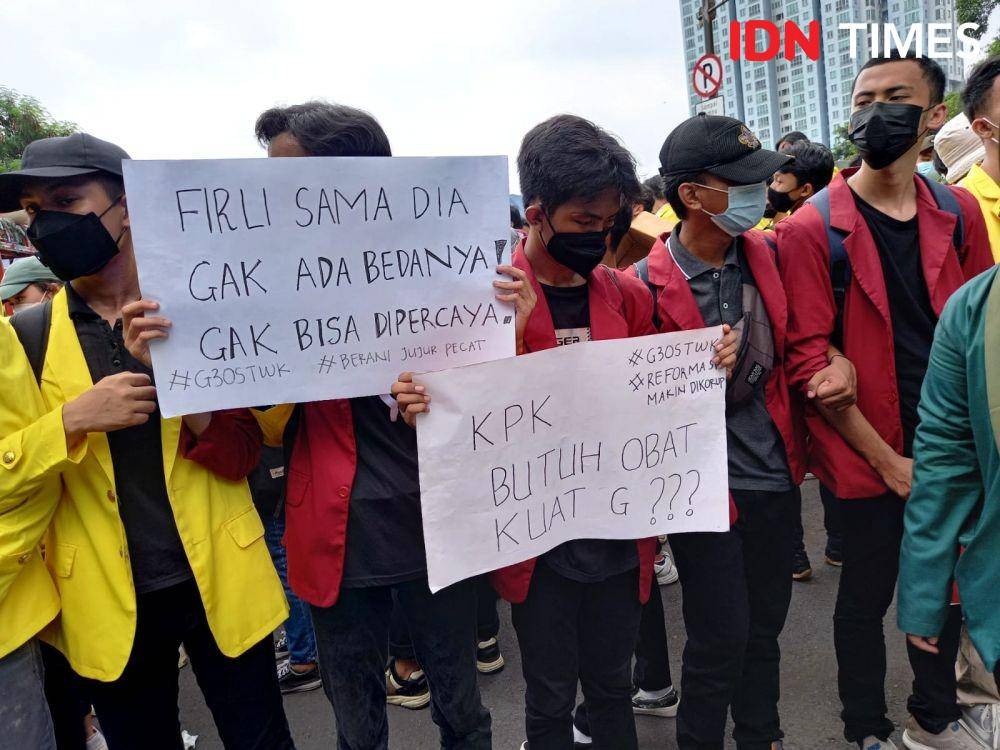 IDN TIMES
P
FIRLI SAMA DIA
GAK ADA BEDANYA!
GAK BISA DIPERCAYA!
#G30STWK #BERANI JUJUR PECAT
#G30STWK
#REFORMASI
MAKIN DIKORUP
KPK
BUTUH OBAT
KUAT G ???